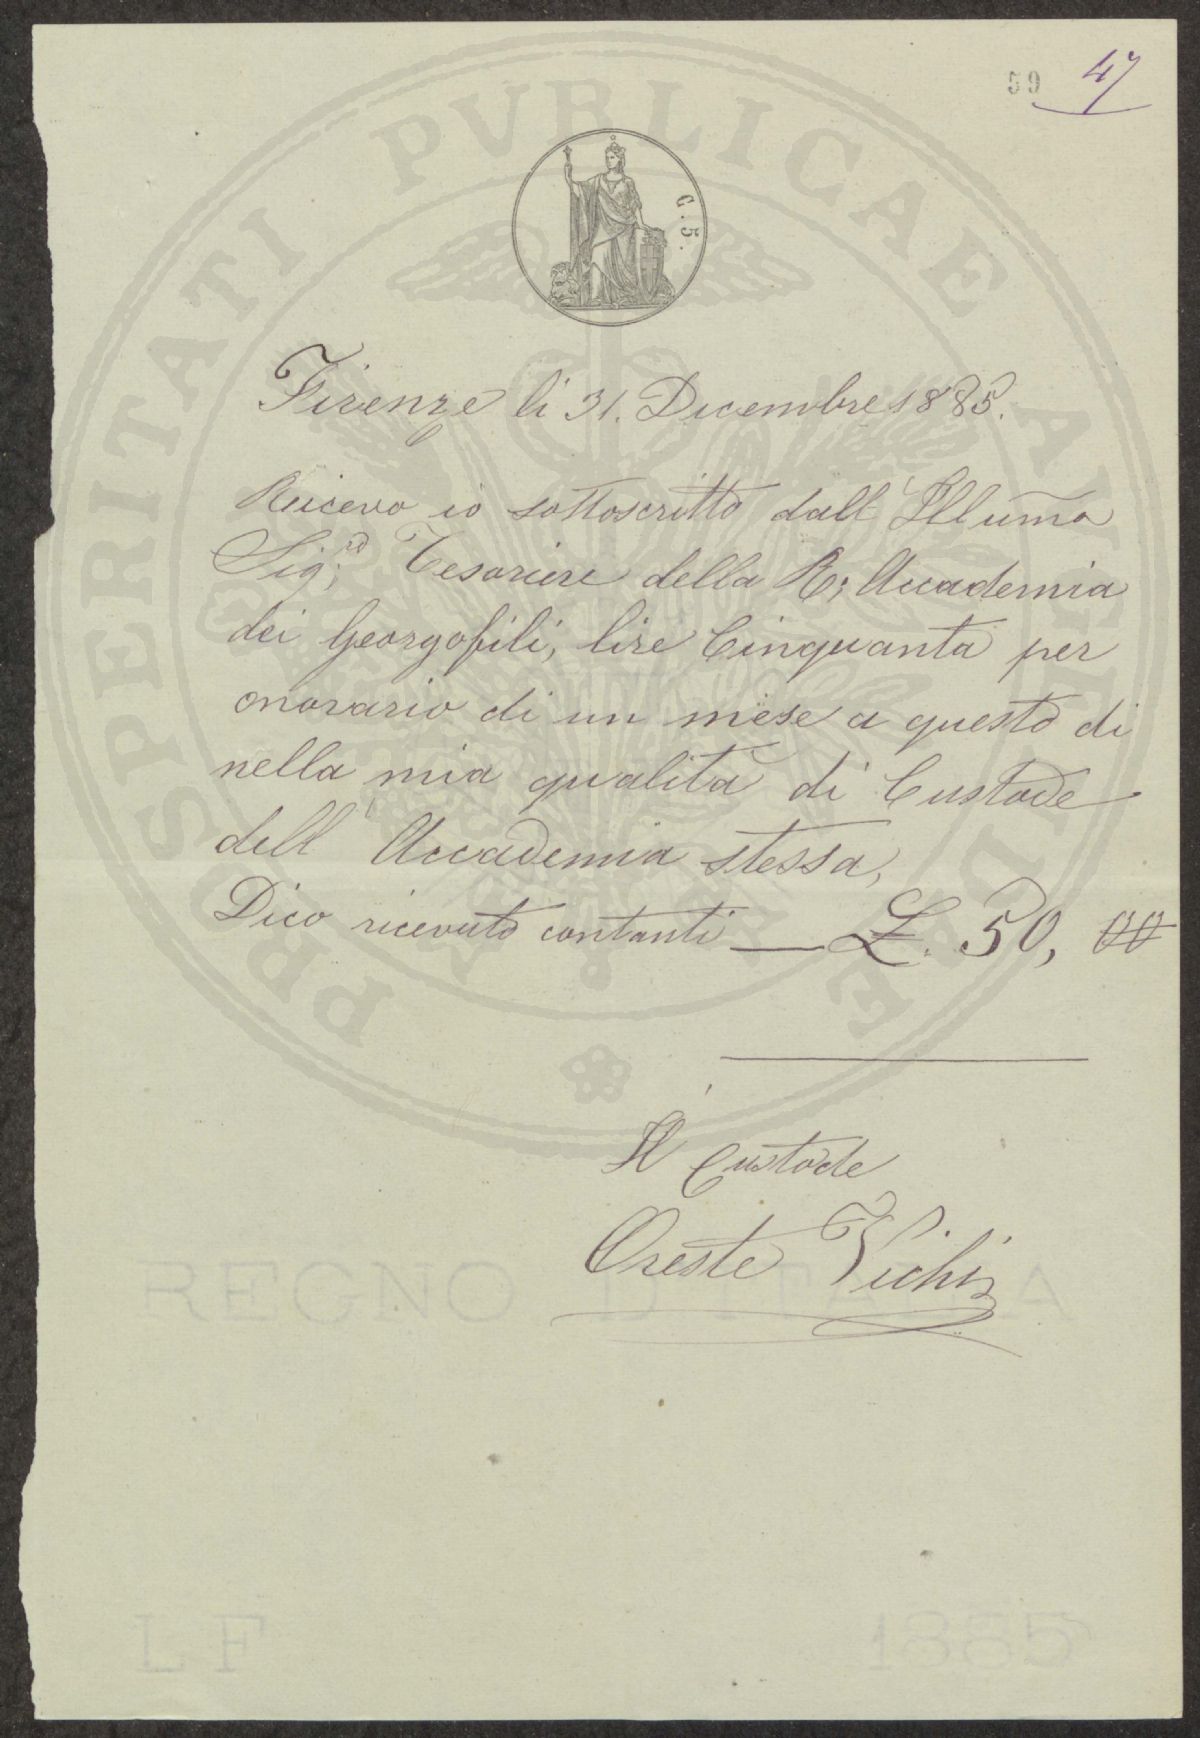 59 47
C. 5.
Firenze li 31. Dicembre 1885.
Ricevo io sottoscritto dall' Illumo
Sig.re Tesoriere della R; Accademia
dei Georgofili, lire Cinquanta per
onorario di un mese a questo di
nella mia qualità di Custode
dell' Accademia stessa,
Dico ricevuto contanti — L. 50, 00
Il Custode
Oreste Vichi
PROSPERITATI PVBLICAE AVGENDAE
REGNO D'ITALIA
LF 1885